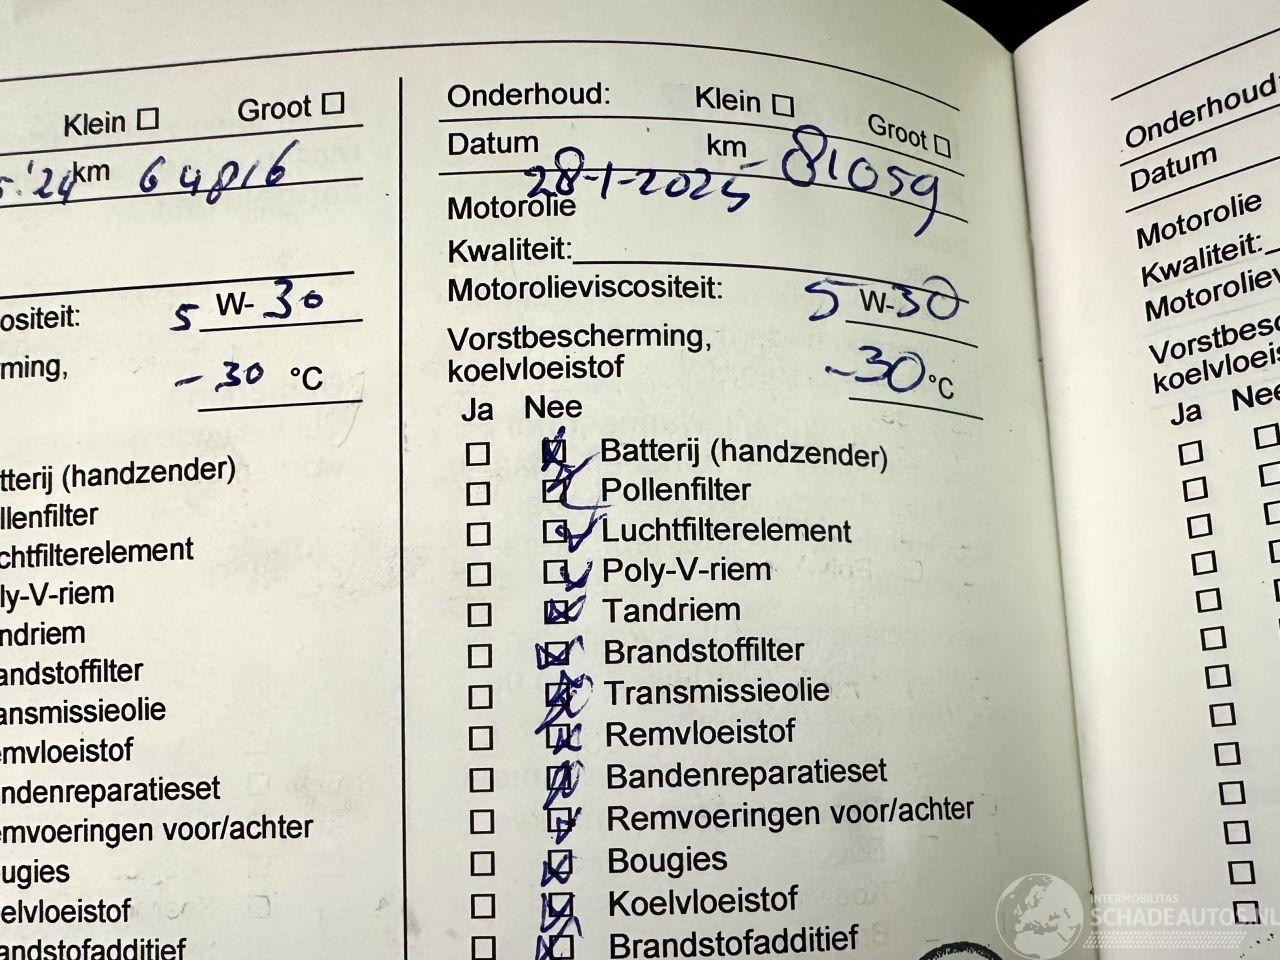 Klein ☐ Groot ☐
'24 km 64816
ositeit: 5 W- 30
ming, - 30 °C
tterij (handzender)
llenfilter
chtfilterelement
ly-V-riem
ndriem
andstoffilter
ansmissieolie
emvloeistof
ndenreparatieset
emvoeringen voor/achter
ugies
elvloeistof
andstofadditief
Onderhoud: Klein ☐ Groot ☐
Datum 28-1-2025 km 81059
Motorolie
Kwaliteit:
Motorolieviscositeit: 5 W-30
Vorstbescherming,
koelvloeistof -30 °C
Ja Nee
Batterij (handzender)
Pollenfilter
Luchtfilterelement
Poly-V-riem
Tandriem
Brandstoffilter
Transmissieolie
Remvloeistof
Bandenreparatieset
Remvoeringen voor/achter
Bougies
Koelvloeistof
Brandstofadditief
Onderhoud:
Datum
Motorolie
Kwaliteit:
Motoroliev
Vorstbesc
koelvloeis
Ja Nee
INTERMOBILITAS
SCHADEAUTOS.NL